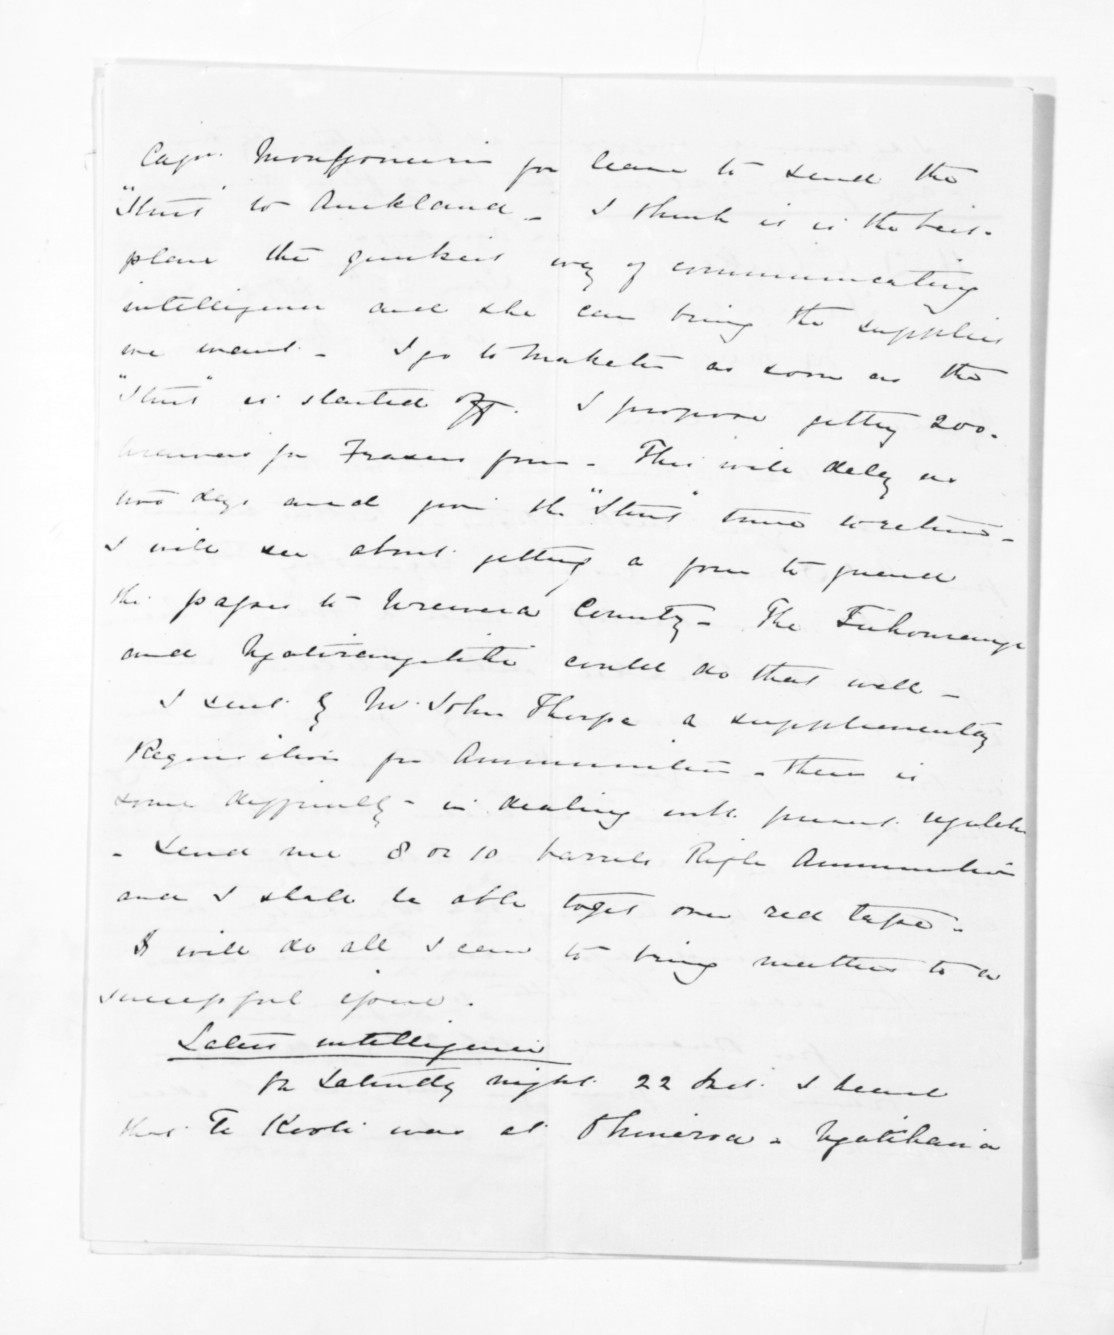 Capn. Montgomerie for leave to send the
"Sturt" to Auckland - I think it is the best
plan the quickest way of communicating
intelligence and she can bring the supplies
we want - I go to Maketu as soon as the
"Sturt" is started off. I propose getting 200
for Frasers force - This will delay us
two days and give the "Sturt" time to return -
I will see about getting a force to guard
the passes to Urewera County - The Tuhourangi
and Ngatirangitihi could do that well -
I sent by Mr. John Thorpe a supplementary
Requisition for Ammunition - there is
some difficulty in dealing with present
- Send me 8 or 10 barrels Rifle Ammunition
and I shall be able to get over red tape -
I will do all I can to bring matters to a
successful issue.
Latest intelligence
On Saturday night 22 Inst. I heard
that Te Kooti was at Ohiwa - Ngatihaua